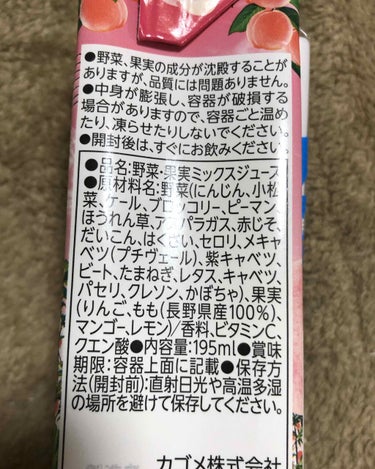 ●野菜、果実の成分が沈殿することが
ありますが、品質には問題ありません。
●中身が膨張し、容器が破損する
場合がありますので、容器ごと温め
たり、凍らせたりしないでください。
●開封後は、すぐにお飲みください。
●品名:野菜・果実ミックスジュース
●原材料名:野菜(にんじん、小松
菜、ケール、ブロッコリー、ピーマン、
ほうれん草、アスパラガス、赤じそ、
だいこん、はくさい、セロリ、メキャ
ベツ(プチヴェール)、紫キャベツ、
ビート、たまねぎ、レタス、キャベツ、
パセリ、クレソン、かぼちゃ)、果実
(りんご、もも(長野県産100%)、
マンゴー、レモン)/香料、ビタミンC、
クエン酸●内容量:195ml●賞味
期限:容器上面に記載●保存方
法(開封前):直射日光や高温多湿
の場所を避けて保存してください。
カゴメ株式会社